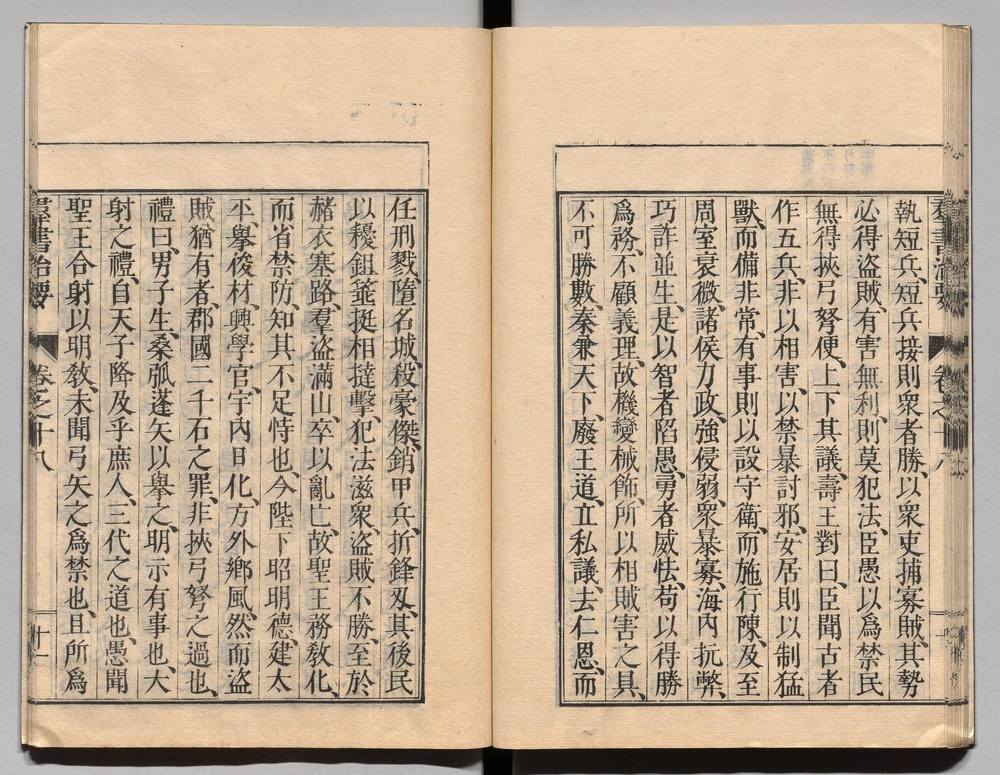 羣書治要 卷之十八
執短兵、短兵接則衆者勝、以衆吏捕寡賊、其勢
必得盜賊、有害無利、則莫犯法、臣愚以爲禁民
無得挾弓弩便、上下其議、壽王對曰、臣聞古者
作五兵、非以相害、以禁暴討邪、安居則以制猛
獸、而備非常、有事則以設守衛、而施行陳、及至
周室衰微、諸侯力政、強侵弱、衆暴寡、海內抏弊、
巧詐並生、是以智者陷愚、勇者威怯、苟以得勝
爲務、不顧義理、故機變械飾、所以相賊害之具、
不可勝數、秦兼天下、廢王道、立私議、去仁恩、而
任刑戮、墮名城、殺豪傑、銷甲兵、折鋒刃、其後民
以耰鉏箠挺相撻擊、犯法滋衆、盜賊不勝、至於
赭衣塞路、羣盜滿山、卒以亂亡、故聖王務敎化、
而省禁防、知其不足恃也、今陛下昭明德、建太
平、擧俊材、興學官、宇內日化、方外鄕風、然而盜
賊猶有者、郡國二千石之罪、非挾弓弩之過也、
禮曰、男子生、桑弧蓬矢以擧之、明示有事也、大
射之禮、自天子降及乎庶人、三代之道也、愚聞
聖王合射以明敎、未聞弓矢之爲禁也、且所爲
羣書治要 卷之十八 十一